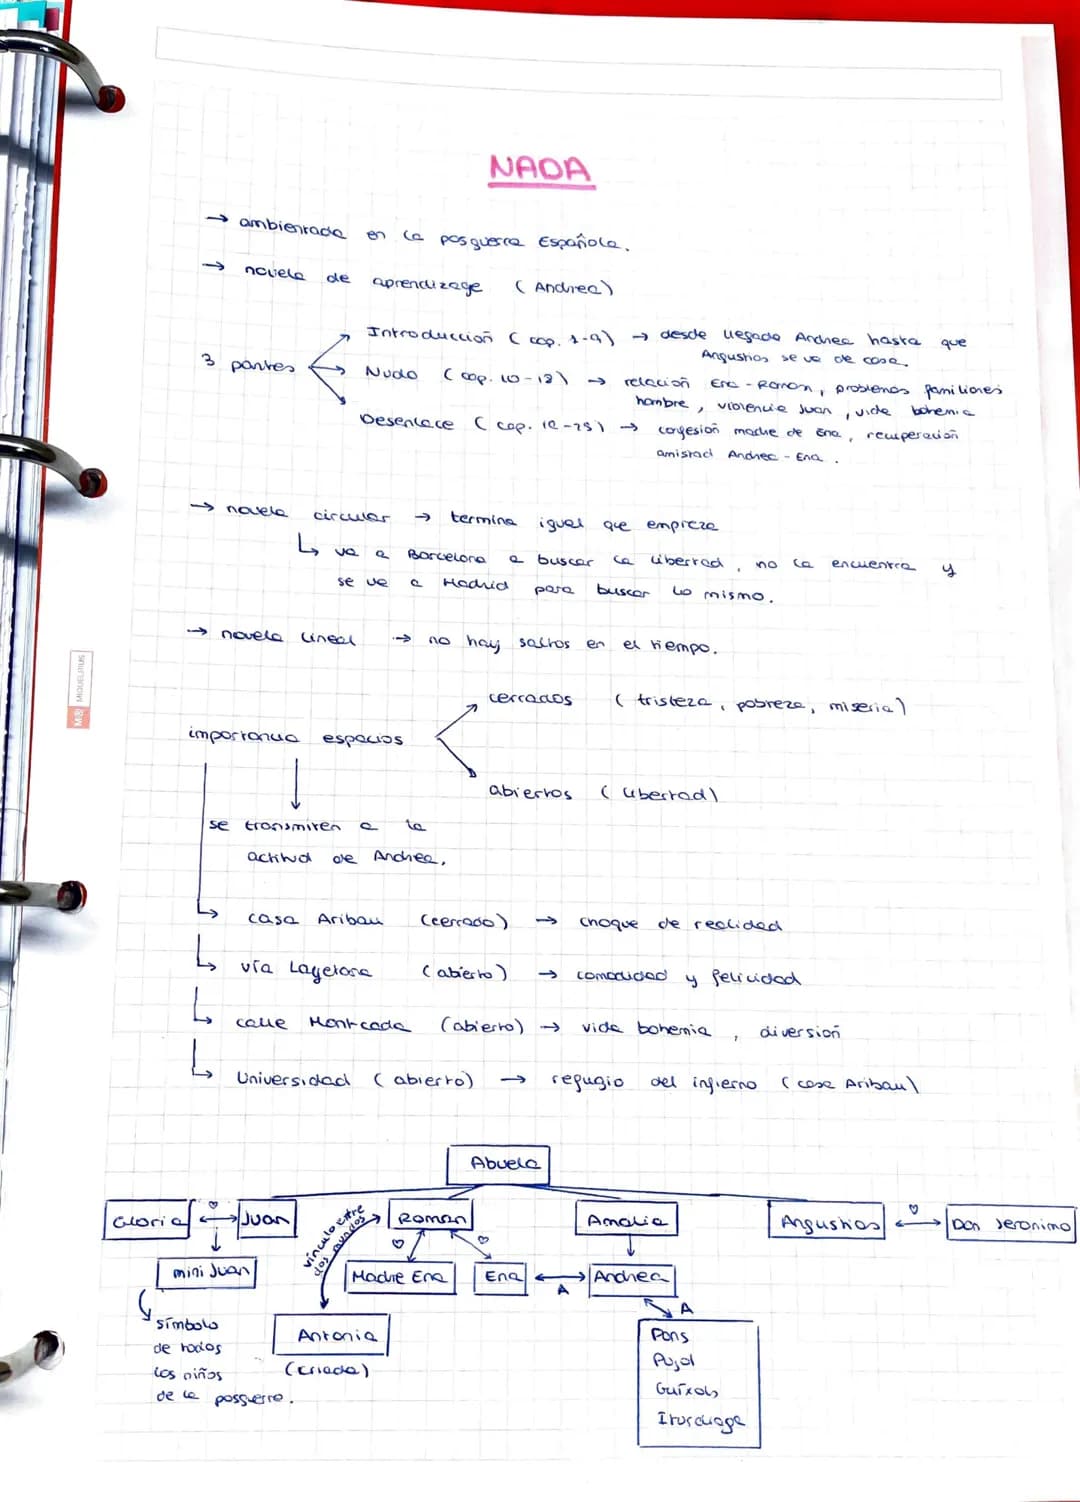 NADA
→ ambientada en la posguerra Española.
→ novela de aprendizage (Andrea)
3 partes
Introducción (cap. 1-9) → desde llegada Andrea hasta que
Angustias se va de casa.
Nudo (cap. 10-18) → relación Ena - Román, problemas familiares
hambre, violencia Juan, vida bohemia
Desenlace (cap. 19-25) → confesión madre de Ena, recuperación
amistad Andrea - Ena.
→ novela circular → termina igual que empieza
↳ va a Barcelona a buscar la libertad, no la encuentra y
se va a Madrid para buscar lo mismo.
→ novela lineal → no hay saltos en el tiempo.
cerrados (tristeza, pobreza, miseria)
importancia espacios
abiertos (libertad)
se transmiten a la
actitud de Andrea.
↳ casa Aribau (cerrado) → choque de realidad
↳ vía Layetana (abierto) → comodidad y felicidad
↳ calle Montcada (abierto) → vida bohemia, diversión
↳ Universidad (abierto) → refugio del infierno (casa Aribau)
Abuela
Gloria ♡ Juan
vínculo entre
los mundos
Román
Amalia
Angustias ♡ Don Jerónimo
mini Juan
♡ Madre Ena
♡ Ena A Andrea
símbolo
de todos
los niños
de la posguerra.
Antonia
(criada)
A
Pons
Pujol
Guíxols
Iturdiaga
MR MIQUELRIUS